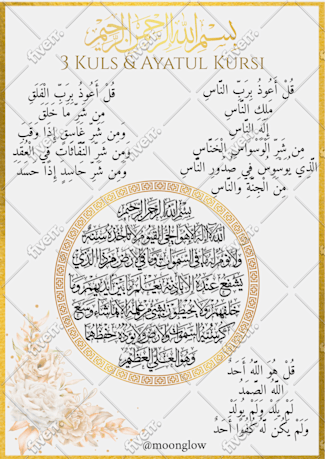 بِسْمِ اللهِ الرَّحْمٰنِ الرَّحِيْمِ
3 KULS & AYATUL KURSI
قُلْ أَعُوذُ بِرَبِّ النَّاسِ
مَلِكِ النَّاسِ
إِلَهِ النَّاسِ
مِن شَرِّ الْوَسْوَاسِ الْخَنَّاسِ
الَّذِي يُوَسْوِسُ فِي صُدُورِ النَّاسِ
مِنَ الْجِنَّةِ وَالنَّاسِ
قُلْ أَعُوذُ بِرَبِّ الْفَلَقِ
مِن شَرِّ مَا خَلَقَ
وَمِن شَرِّ غَاسِقٍ إِذَا وَقَبَ
وَمِن شَرِّ النَّفَّاثَاتِ فِي الْعُقَدِ
وَمِن شَرِّ حَاسِدٍ إِذَا حَسَدَ
بسم الله الرحمن الرحيم
الله لا إله إلا هو الحي القيوم لا تأخذه سنة
ولا نوم له ما في السموات وما في الأرض من ذا الذي
يشفع عنده إلا بإذنه يعلم ما بين أيديهم وما
خلفهم ولا يحيطون بشيء من علمه إلا بما شاء وسع
كرسيه السموات والأرض ولا يؤده حفظهما
وهو العلي العظيم
قُلْ هُوَ اللَّهُ أَحَدٌ
اللَّهُ الصَّمَدُ
لَمْ يَلِدْ وَلَمْ يُولَدْ
وَلَمْ يَكُن لَّهُ كُفُوًا أَحَدٌ
@moonglow
fiverr.